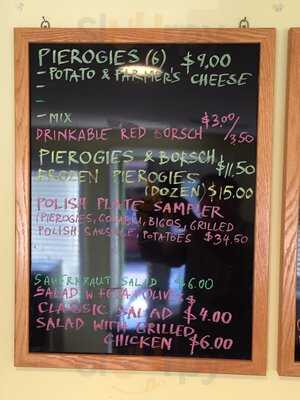 PIEROGIES (6) $9.00
- POTATO & FARMER'S CHEESE
-
-
- MIX
DRINKABLE RED BORSCH $3.00/3.50
PIEROGIES & BORSCH $11.50
FROZEN PIEROGIES
(DOZEN) $15.00
POLISH PLATE SAMPLER
(PIEROGIES, GOLABKI, BIGOS, GRILLED
POLISH SAUSAGE, POTATOES $34.50
SAUERKRAUT SALAD $6.00
SALAD W FETA & OLIVES $
CLASSIC SALAD $4.00
SALAD WITH GRILLED
CHICKEN $6.00